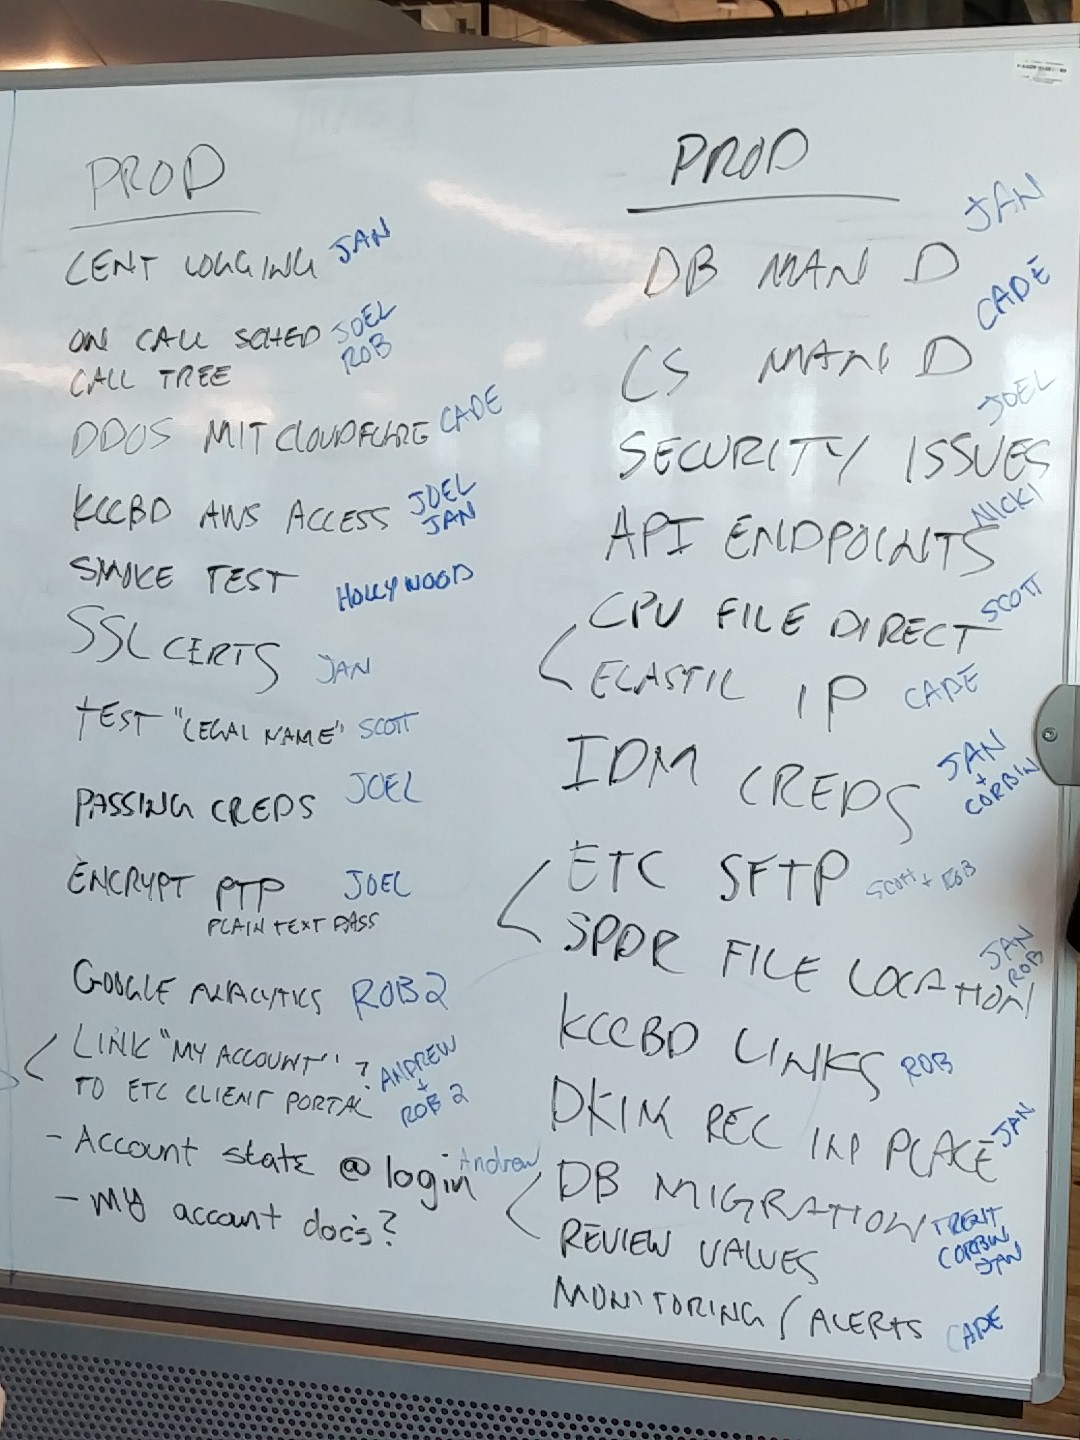 PROD
CENT LOGGING JAN
ON CALL SCHED JOEL
CALL TREE ROB
DDOS MIT CLOUDFLARE CADE
KCCBD AWS ACCESS JOEL
JAN
SMOKE TEST HOLLYWOOD
SSL CERTS JAN
TEST "LEGAL NAME" SCOTT
PASSING CREDS JOEL
ENCRYPT PTP JOEL
PLAIN TEXT PASS
GOOGLE ANALYTICS ROB2
LINK "MY ACCOUNT" ? ANDREW
+
TO ETC CLIENT PORTAL ROB 2
- Account state @ login Andrew
- My account docs?
PROD
JAN
DB MAN D
CADE
CS MAN D
JOEL
SECURITY ISSUES
NICKI
API ENDPOINTS
CPU FILE DIRECT SCOTT
ELASTIC IP CADE
IDM CREDS JAN
+
CORBIN
ETC SFTP SCOTT + ROB
SPDR FILE LOCATION JAN
ROB
KCCBD LINKS ROB
DKIM REC IN PLACE JAN
DB MIGRATION TRENT
REVIEW VALUES CORBIN
JAN
MONITORING / ALERTS CADE